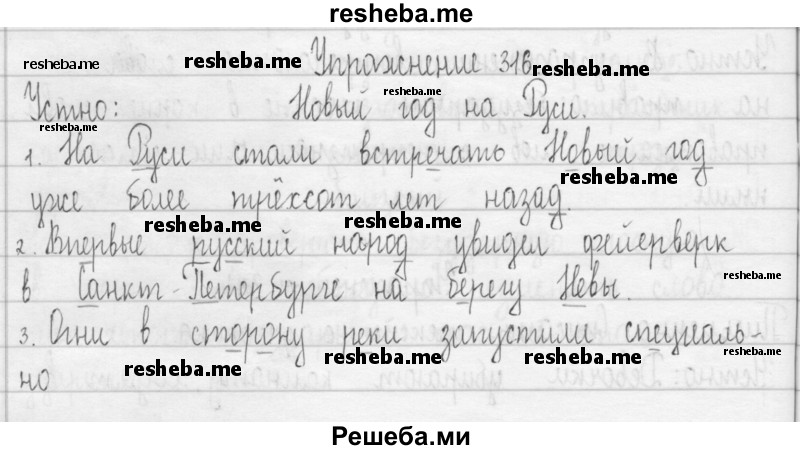 resheba.me
Упражнение 316
resheba.me
resheba.me
Устно: Новый год на Руси.
resheba.me
resheba.me
1. На Руси стали встречать Новый год
resheba.me
уже более трёхсот лет назад.
resheba.me
resheba.me
2. Впервые русский народ увидел фейерверк
в Санкт-Петербурге на берегу Невы.
resheba.me
3. Огни в сторону реки запустили специаль-
resheba.me
resheba.me
resheba.me
но
Решеба.ми